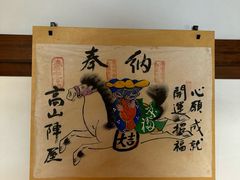 奉納
心願成就
開運招福
高山陣屋